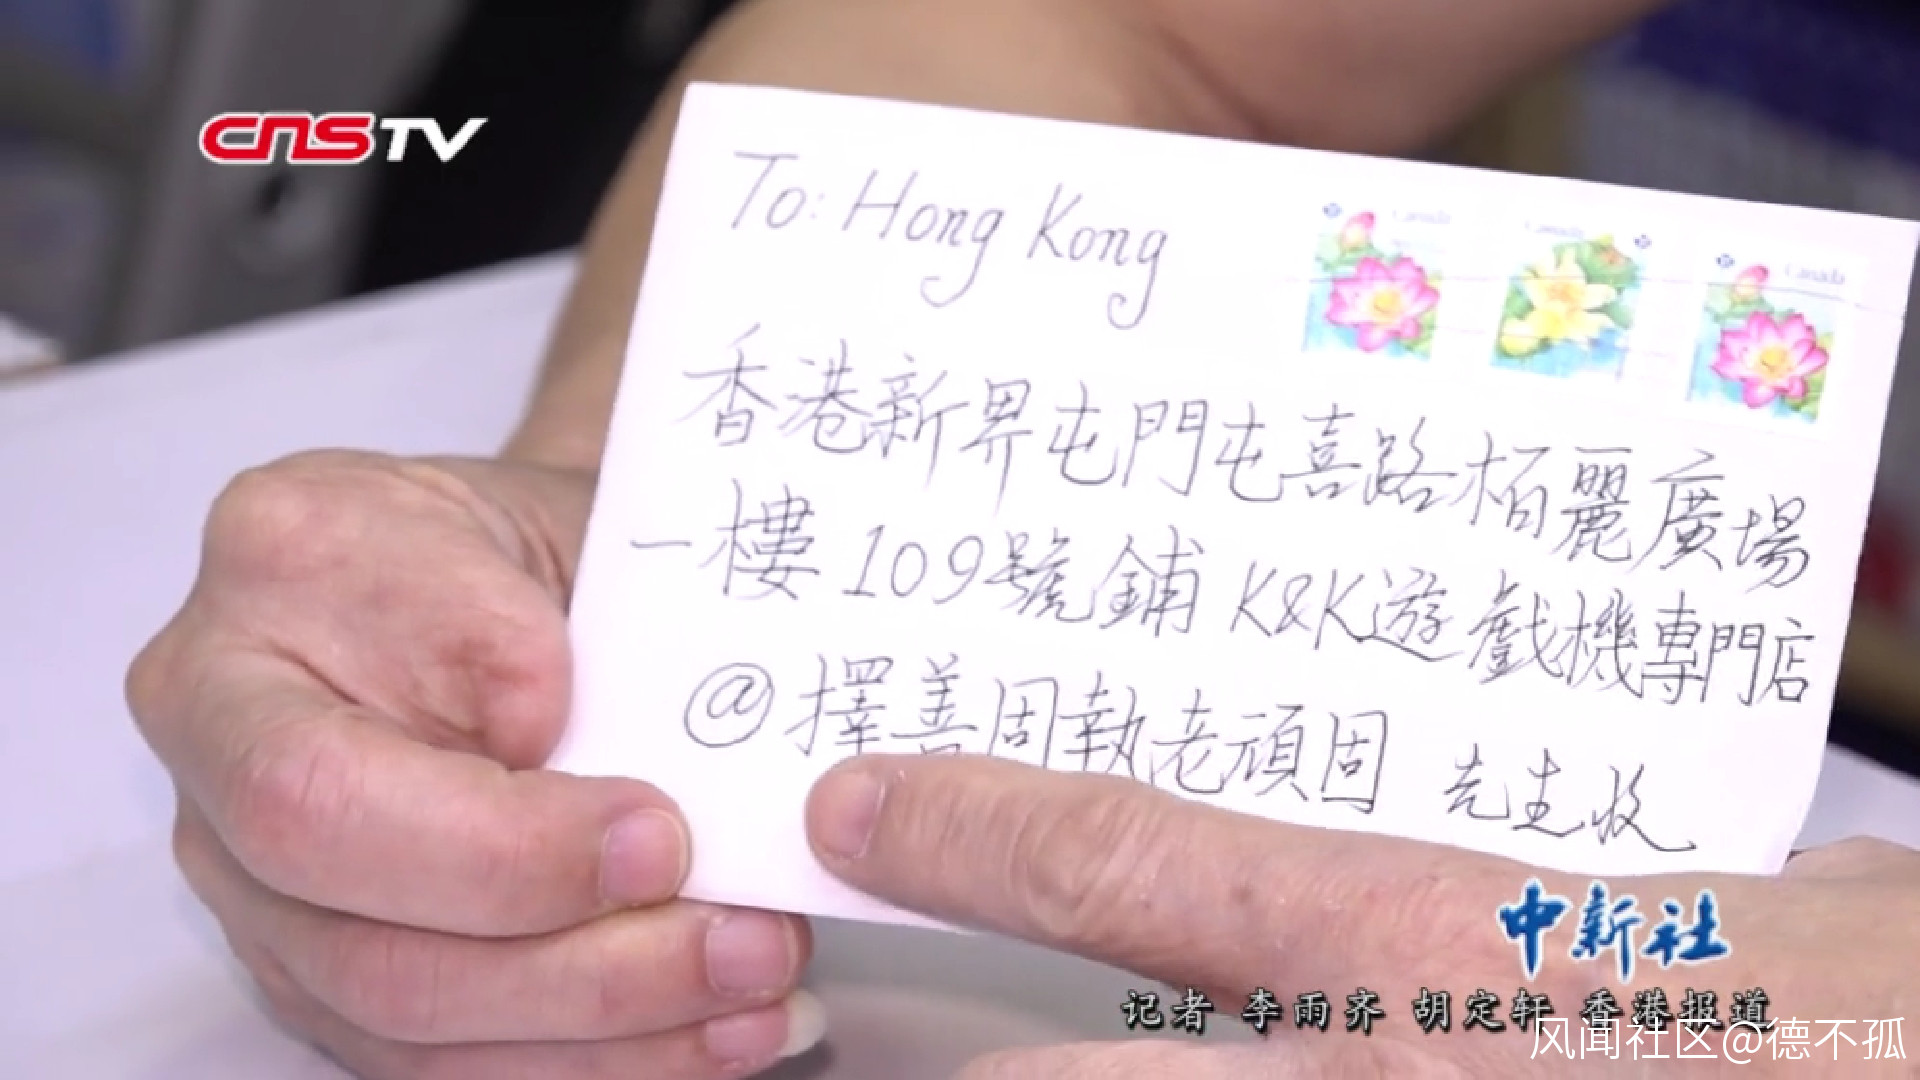 CNSTV
To: Hong Kong
Canada
Canada
Canada
香港新界屯門屯喜路栢麗廣場
一樓109號鋪K&K遊戲機專門店
@擇善固執老頑固 先生收
中新社
记者 李雨齐 胡定轩 香港报道
风闻社区@德不孤